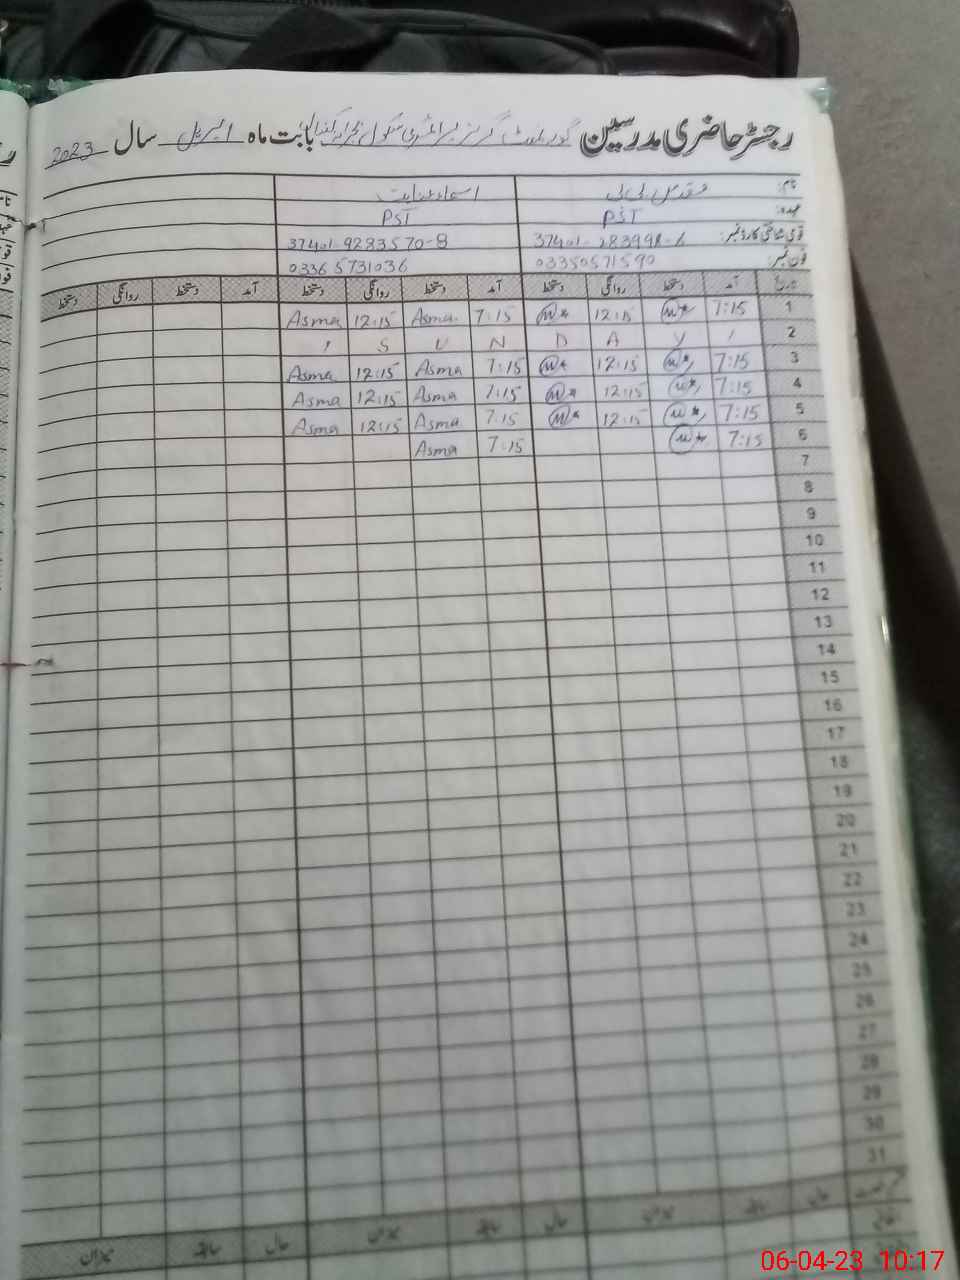 رجسٹر حاضری مدرسین گورنمنٹ گرلز پرائمری سکول بابت ماہ اپریل سال 2023
نام: مقدس بی بی اسماء عنایت
عہدہ: PST PST
قومی شناختی کارڈ نمبر: 37401-9283570-8
فون نمبر: 03350571590 03365731036
تاریخ آمد دستخط روانگی دستخط آمد دستخط روانگی دستخط آمد دستخط روانگی دستخط
1 7:15 12:15 7:15 Asma 12:15 Asma
2 , Y A D N U S ,
3 7:15 12:15 7:15 Asma 12:15 Asma
4 7:15 12:15 7:15 Asma 12:15 Asma
5 7:15 12:15 7:15 Asma 12:15 Asma
6 7:15 7:15 Asma
7
8
9
10
11
12
13
14
15
16
17
18
19
20
21
22
23
24
25
26
27
28
29
30
31
حال سابقہ میزان حال سابقہ میزان حال سابقہ میزان
06-04-23 10:17